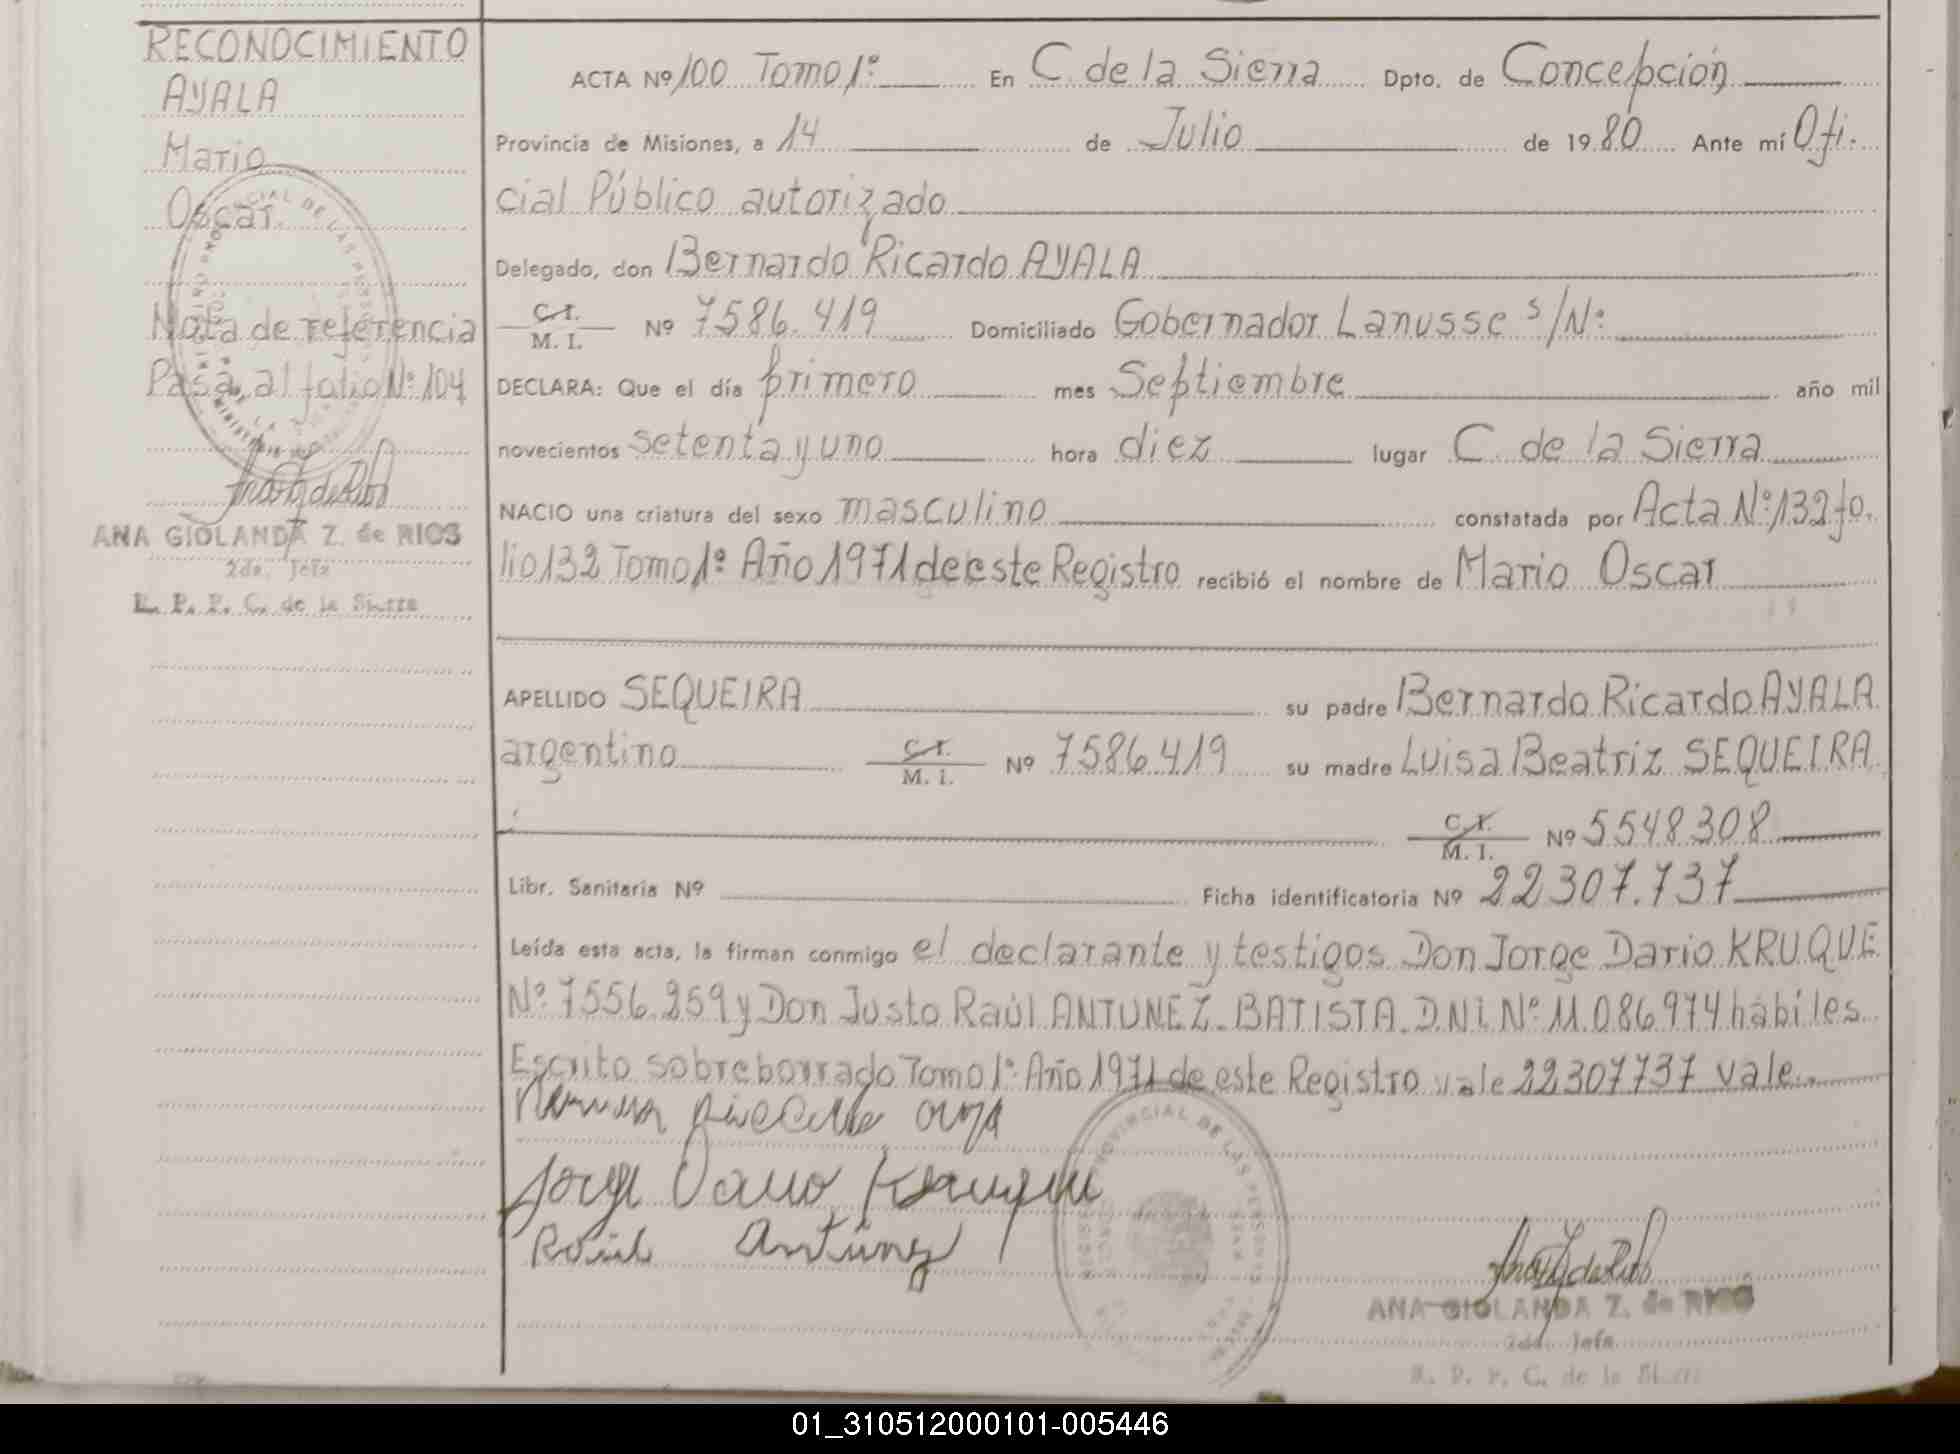 RECONOCIMIENTO
AYALA
Mario
Oscar.
Nota de referencia
Pasa al folio Nº: 104
ANA GIOLANDA Z. de RIOS
2da. Jefa
R. P. P. C. de la Sierra
ACTA Nº 100 Tomo 1º En C. de la Sierra Dpto. de Concepción
Provincia de Misiones, a 14 de Julio de 1980 Ante mí Ofi.
cial Público autorizado
Delegado, don Bernardo Ricardo AYALA
C.I. M. I. Nº 7586.419 Domiciliado Gobernador Lanusse s/Nº:
DECLARA: Que el día primero mes Septiembre año mil
novecientos setenta y uno hora diez lugar C. de la Sierra
NACIO una criatura del sexo masculino constatada por Acta Nº: 132 fo.
lio 132 Tomo 1º Año 1971 de este Registro recibió el nombre de Mario Oscar
APELLIDO SEQUEIRA su padre Bernardo Ricardo AYALA
argentino C.I. M. I. Nº 7586.419 su madre Luisa Beatriz SEQUEIRA
C.I. M. I. Nº 5548308
Libr. Sanitaria Nº Ficha identificatoria Nº 22307.737
Leída esta acta, la firman conmigo el declarante y testigos Don Jorge Dario KRUQUE
Nº 7556.259 y Don Justo Raúl ANTUNEZ. BATISTA. D.N.I. Nº 11.086974 hábiles.
Escrito sobreborrado Tomo 1º Año 1971 de este Registro vale 22307737 vale.
Jorge Dario Kruque
Raúl Antunez
REGISTRO PROVINCIAL DE LAS PERSONAS
ANA GIOLANDA Z. de RIOS
2da. Jefa
R. P. P. C. de la Sierra
01_310512000101-005446